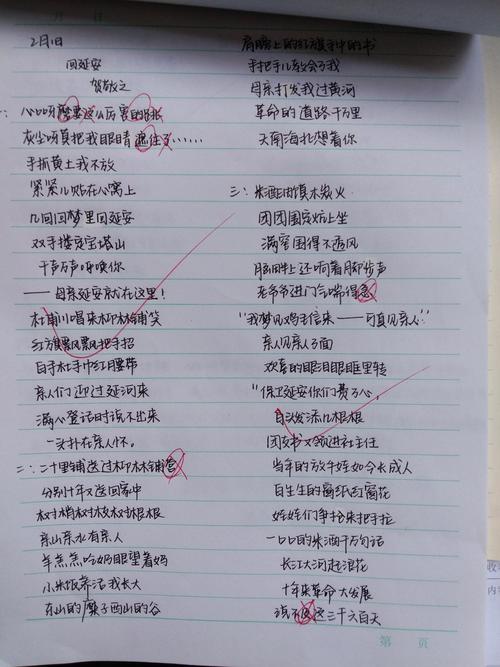 2月1日
回延安
贺敬之
一：心口呀莫要这么厉害的跳
灰尘呀莫把我眼睛遮住了……
手抓黄土我不放
紧紧儿贴在心窝上
几回回梦里回延安
双手搂定宝塔山
千声万声呼唤你
——母亲延安就在这里！
杜甫川唱来柳林铺笑
红旗飘飘把手招
白羊肚手巾红腰带
亲人们迎过延河来
满心登记时说不出来
一头扑在亲人怀。
二：二十里铺送过柳林铺
分别十年又送回家中
树梢树枝树根根
亲山亲水有亲人
羊羔羔吃奶眼望着妈
小米饭养活我长大
东山的糜子西山的谷
肩膀上的红旗手中的书
手把手儿教会了我
母亲打发我过黄河
革命的道路千万里
天南海北想着你
三：米酒油馍木炭火
团团围定炕上坐
满窑围得不透风
脑畔上还响着脚步声
老爷爷进门气喘得急
“我梦见鸡毛信来——可真见亲人”
亲人见亲人面
欢喜的眼泪眼眶里转
“保卫延安你们费了心，
白头发添几根根
团支书又领进社主任
当年的放牛娃如今长成人
白生生的窗纸红窗花
娃娃们争抢来把手拉
一口口的米酒千万句话
长江大河起浪花
十年来革命大发展
说不尽这三千六百天
第 页